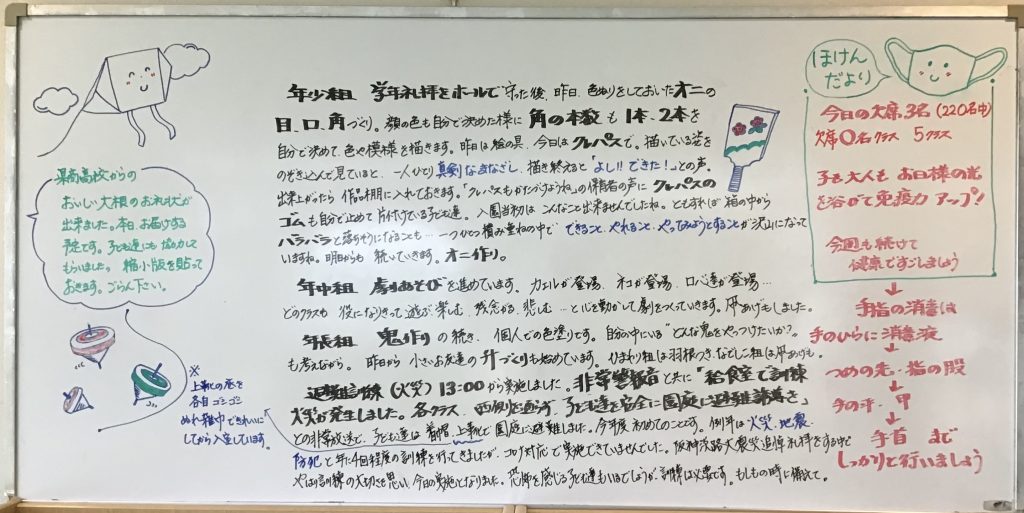 県商高校からの
おいしい大根のお礼状が
出来ました。本日、お届けする
予定です。子ども達にも協力して
もらいました。縮小版を貼って
おきます。ごらん下さい。
※
上靴との底を
各自ゴシゴシ
ぬれ雑巾できれいに
してから入室しています。
年少組 学年礼拝をホールで守った後、昨日、色ぬりをしておいたオニの
目、口、角づくり。顔の色も自分で決めた様に角の本数も1本、2本を
自分で決めて、色や模様を描きます。昨日は絵の具、今日はクレパスで。描いている姿を
のぞき込んで見ていると、一人ひとり真剣なまなざし。描き終えると「よし!!できた!」との声。
出来上がったら作品棚に入れておきます。「クレパスもかたづけようね」の保育者の声にクレパスの
ゴムも自分で止めて片付けている子ども達。入園当初はこんなこと出来ませんでしたね。ともすれば箱の中から
バラバラと落ちそうになることも…一つひとつ積み重ねの中でできること、やれること、やってみようとすることが沢山になって
いますね。明日からも続いていきます。オニ作り。
年中組 劇あそびを進めています。カエルが登場、ネコが登場、ロバ達が登場…
どのクラスも役になりきって遊ぶ、楽しむ、残念がる、悲しむ…と心を動かして劇をつくっていきます。凧あげもしました。
年長組 鬼作りの続き、個人での色塗りです。自分の中にいる"どんな鬼をやっつけたいか?"
も考えながら。昨日から小さいお友達の升づくりも始めています。ひまわり組は羽根つき、なでしこ組は凧あげも。
避難訓練(火災)13:00から実施しました。非常警報音と共に「給食室で訓練
火災が発生しました。各クラス、西側を通らず、子ども達を安全に園庭に避難誘導を」
との非常放送で、子ども達は着帽、上靴で園庭に避難しました。今年度初めてのことです。例年は火災、地震、
防犯と年に4回程度の訓練を行ってきましたが、コロナ対応で実施できていませんでした。阪神淡路大震災追悼礼拝をする中で
やはり訓練の大切さを思い、今日の実施となりました。恐怖を感じる子ども達もいるでしょうが、訓練は必要です。もしもの時に備えて。
ほけん
だより
今日の欠席3名(220名中)
欠席0名クラス 5クラス
子ども大人もお日様の光
を浴びて免疫力アップ!
今週も続けて
健康ですごしましょう
手指の消毒は
手のひらに消毒液
つめの先・指の股
手の平・甲
手首まで
しっかりと行いましょう